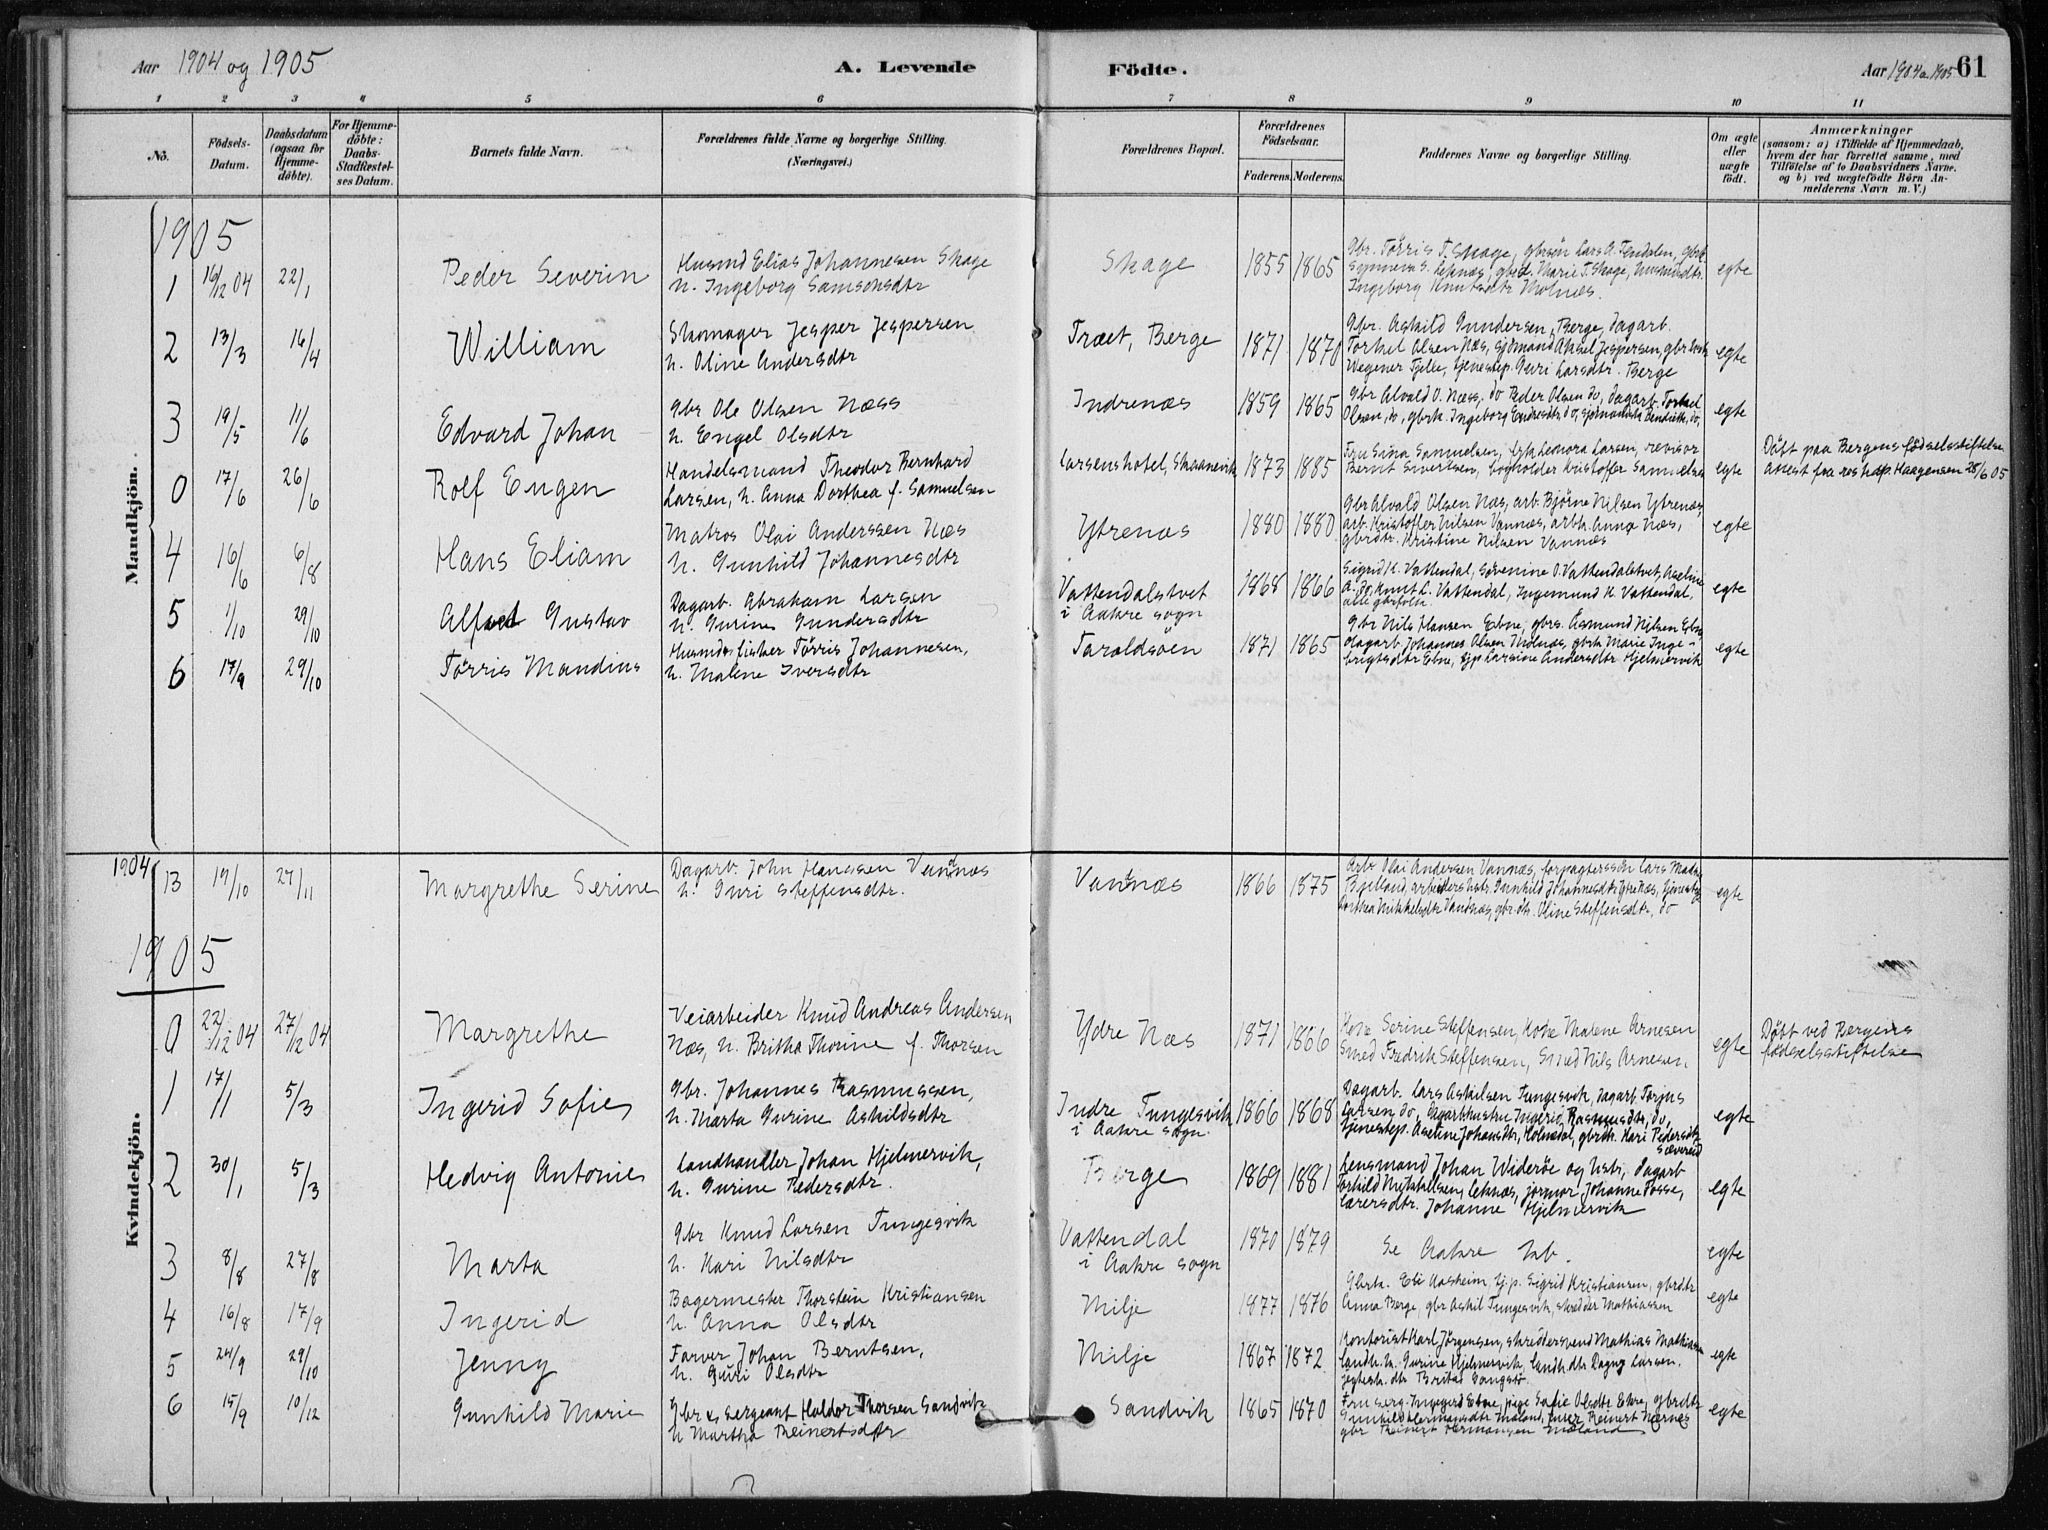 Aar 1904 og 1905
A. Levende
Födte.
Aar 1904 o 1905 61
1 2 3 4 5 6 7 8 9 10 11
No.
Födsels-
Datum.
Daabsdatum
(ogsaa for
Hjemme-
döbte).
For Hjemme-
döbte:
Daabs-
Stadfæstel-
ses Datum.
Barnets fulde Navn.
Forældrenes fulde Navne og borgerlige Stilling.
(Næringsvei.)
Forældrenes Bopæl.
Forældrenes
Födselsaar.
Faderens. Moderens.
Faddernes Navne og borgerlige Stilling.
Om ægte
eller
uægte
födt.
Anmærkninger
(saasom: a) i Tilfælde af Hjemmedaab,
hvem der har forrettet samme, med
Tilföielse af to Daabsvidners Navne,
og b) ved uægtefödte Börn An-
melderens Navn m. V.)
Mandkjön.
1905
1 16/12 04 22/1 Peder Severin
Husmd Elias Johannesen Skage
h. Ingeborg Samsonsdtr
Skage 1855 1865
Gbr. Törris T. Skage, gbrsön Lars A. Tendalen, gbrk.
Synneva S. Leknæs, gbrd. Marie T. Skage, husmdtr.
Ingeborg Knutsdtr Molnæs.
egte
2 13/3 16/4 William
Skomager Jesper Jespersen
h. Oline Andersdtr
Træet, Berge 1871 1870
Gbr. Askild Gundersen, Berge, dagarb.
Torkel Olsen Næs, sjömand Aksel Jespersen, gbr
Wegener Fjelle, tjenestep. Guri Larsdtr. Berge
egte
3 19/5 11/6 Edvard Johan
Gbr Ole Olsen Næss
h. Engel Olsdtr
Indrenæs 1859 1865
Gbr Alvald O. Næss, do Peder Olsen do, dagarb. Torkel
Olsen, do, gbrk. Ingeborg Endresdtr do,
egte
0 17/6 26/6 Rolf Eugen
Handelsmand Theodor Bernhard
Larsen, h. Anna Dorthea f. Samuelsen
Larsens hotel, Skaanevik 1873 1885
Fru Sina Samuelsen, frk Lenora Larsen, revisor
Bernt Sivertsen, bogholder Kristoffer Samuelsen
egte
Döbt paa Bergens födselsstiftelse
Attest fra res. kap. Haagensen 28/6 05
4 16/6 6/8 Hans Eliam
Matros Olai Anderssen Næs
h. Gunhild Johannesdtr
Ytrenæs 1880 1880
Gbr Alvald Olsen Næs, arb. Björne Nilsen Ytrenæs,
arb. Kristoffer Nilsen Vannæs, arbk. Anna Næs,
gbrdtr. Kristine Nilsen Vannæs
egte
5 1/10 29/10 Alfred Gustav
Dagarb. Abraham Larsen
h. Gurine Gundersdtr
Vattendalstvet
i Aakre sogn
1868 1866
Sigrid K. Vattendal, Severine O. Vattendalstvet, Aseline
A. do, Knut L. Vattendal, Ingemund K. Vattendal,
alle gbrfolk.
egte
6 17/9 29/10 Törris Mandius
Husmd o fisker Törris Johannesen,
h. Malene Iversdtr
Taraldsöen 1871 1865
Gbr Nils Hansen Ebne, gbrs. Åsmund Nilsen Ebne
dagarb. Johannes Olsen Molnæs, gbrk. Marie Inge-
brigtsdtr Ebne, tjp Larsine Andersdtr Hjelmervik
egte
Kvindekjön.
1904
13 19/10 27/11 Margrethe Serine
Dagarb. John Hanssen Vandnæs
h. Guri Steffensdtr.
Vandnæs 1866 1875
Arb Olai Andersen Vannæs, forpagterssön Lars Mads.
arbeiders hstr. Gunhild Johannesdtr Ytre Næs, tjenestep.
Dorthea Mikkelsdtr Vandnæs, gbr.dtr. Oline Steffensdtr, do
egte
1905
0 22/12 04 27/12 04 Margrethe
Veiarbeider Knud Andreas Andersen
Næs, h. Britha Thorine f. Thorsen
Ydre Næs 1871 1866
Kone Serine Steffensen, Kone Malene Arnesen
Smed Fredrik Steffensen, Smed Nils Arnesen.
egte
Döbt ved Bergens
födselsstiftelse
1 17/1 5/3 Ingerid Sofie
Gbr. Johannes Rasmussen,
h. Marta Gurine Askildsdtr
Indre Tungesvik
i Aakre sogn.
1866 1868
Dagarb. Lars Askilsen Tungesvik, dagarb Torjus
Larsen do, dagarbhustru Ingerid Rasmusdtr, do,
tjenestep. Aseline Johansdtr, Holmedal, gbrdtr. Kari Pedersdtr
Sævereid
egte
2 30/1 5/3 Hedvig Antonie
Landhandler Johan Hjelmervik,
h. Gurine Pedersdtr.
Berge 1869 1881
Lensmand Johan Wideröe og hstr, dagarb
Torkild Mikkelsen, Leknæs, jormor Johanne Fosse,
lærersdtr. Johanne Hjelmervik
egte
3 8/8 27/8 Marta
Gbr Knud Larsen Tungesvik
h. Kari Nilsdtr
Vattendal
i Aakre sogn
1870 1879
Se Aakre kb.
egte
4 16/8 17/9 Ingerid
Bagermester Thorstein Kristiansen
h. Anna Olsdtr
Milje 1877 1876
Gbrk. Eli Aasheim, tj.p. Sigrid Kristiansen, gbrdtr
Anna Berge, gbr Askil Tungesvik, skredder Mathiassen
egte
5 24/9 29/10 Jenny
Farver Johan Berntsen,
h. Guri Olsdtr
Milje 1867 1872
Kontorist Karl Jörgensen, skreddersvend Mathias Mathiassen
Landh. h. Gurine Hjelmervik, landh.dtr Dagny Larsen.
dtr Brita Vangstö.
egte
6 15/9 10/12 Gunhild Marie
Gbr og sergeant Haldor Thorsen Sandvik
h Martha Reinertsdtr
Sandvik 1865 1870
Fru Ingegerd Ebne, pige Sofie Olsdtr Ekre, gbrdtr
Gunhild Hermansdtr Mæland, Reinert Nernes
gbr Reinert Hermansen Mæland
egte